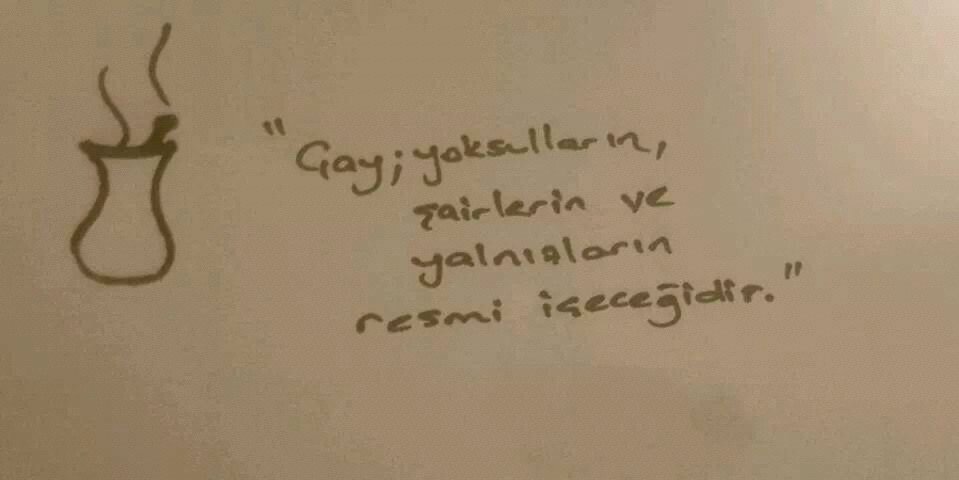 "Çay; yoksulların,
şairlerin ve
yalnızların
resmi içeceğidir."